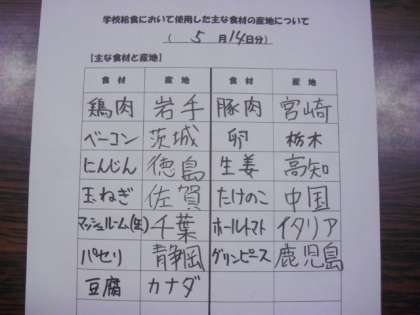 学校給食において使用した主な食材の産地について
( 5 月 14 日分)
【主な食材と産地】
食材 産地 食材 産地
鶏肉 岩手 豚肉 宮崎
ベーコン 茨城 卵 栃木
にんじん 徳島 生姜 高知
玉ねぎ 佐賀 たけのこ 中国
マッシュルーム(生) 千葉 ホールトマト イタリア
パセリ 静岡 グリンピース 鹿児島
豆腐 カナダ